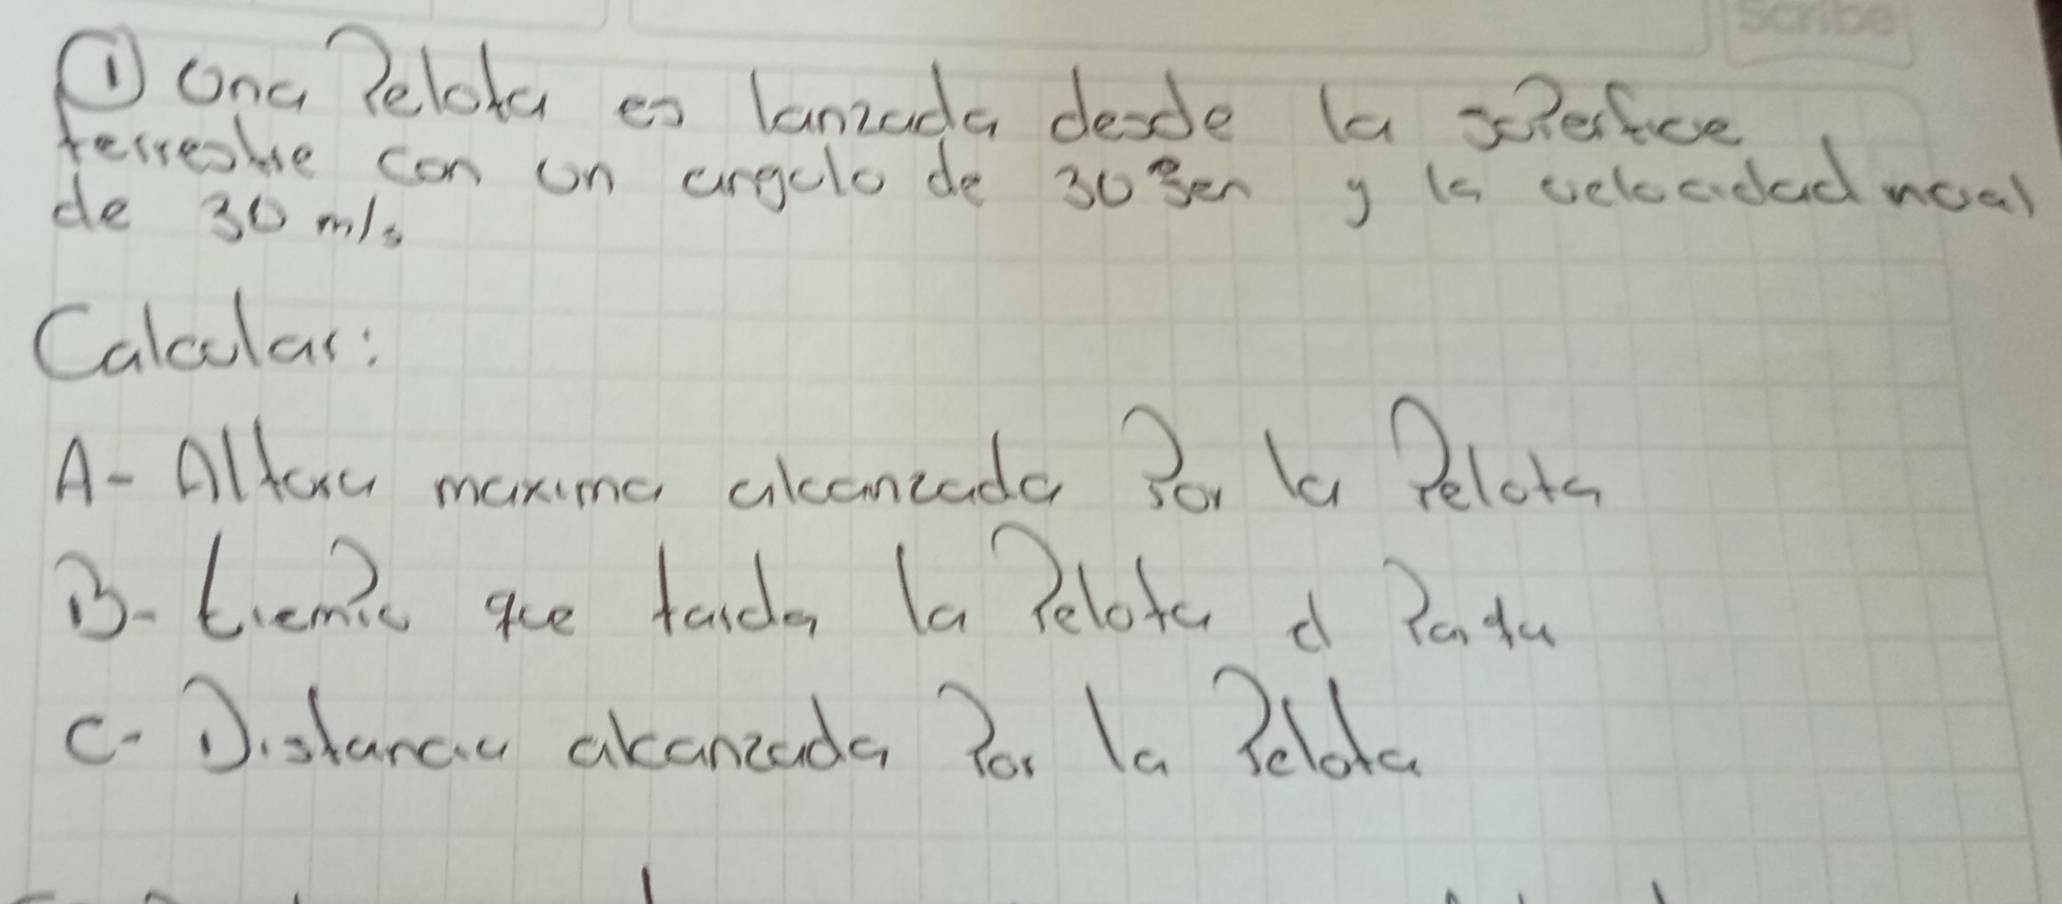 Scribe
① Una Pelota es lanzada desde la superfice
terrestre con un angulo de 30° Sen y la velocidad incial
de 30 m/s
Calcular:
A- Altura maxima alcanzada Por la Pelota
B- tiempo que tarda la Pelota d
C- Distancia alcanzada Por la Pelota